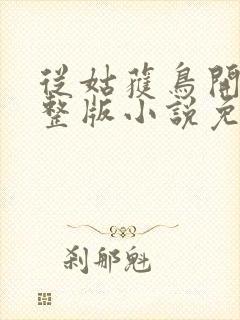 從姑獲鳥開
整版小說免
刹那魁